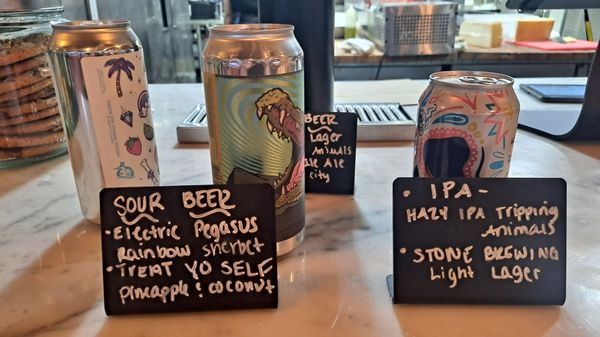 SOUR BEER
• Electric Pegasus
Rainbow sherbet
• TREAT YO SELF
pineapple & coconut
BEER
Lager
Animals
ale Ale
city
• IPA -
HAZY IPA Tripping
Animals
• STONE BREWING
Light Lager